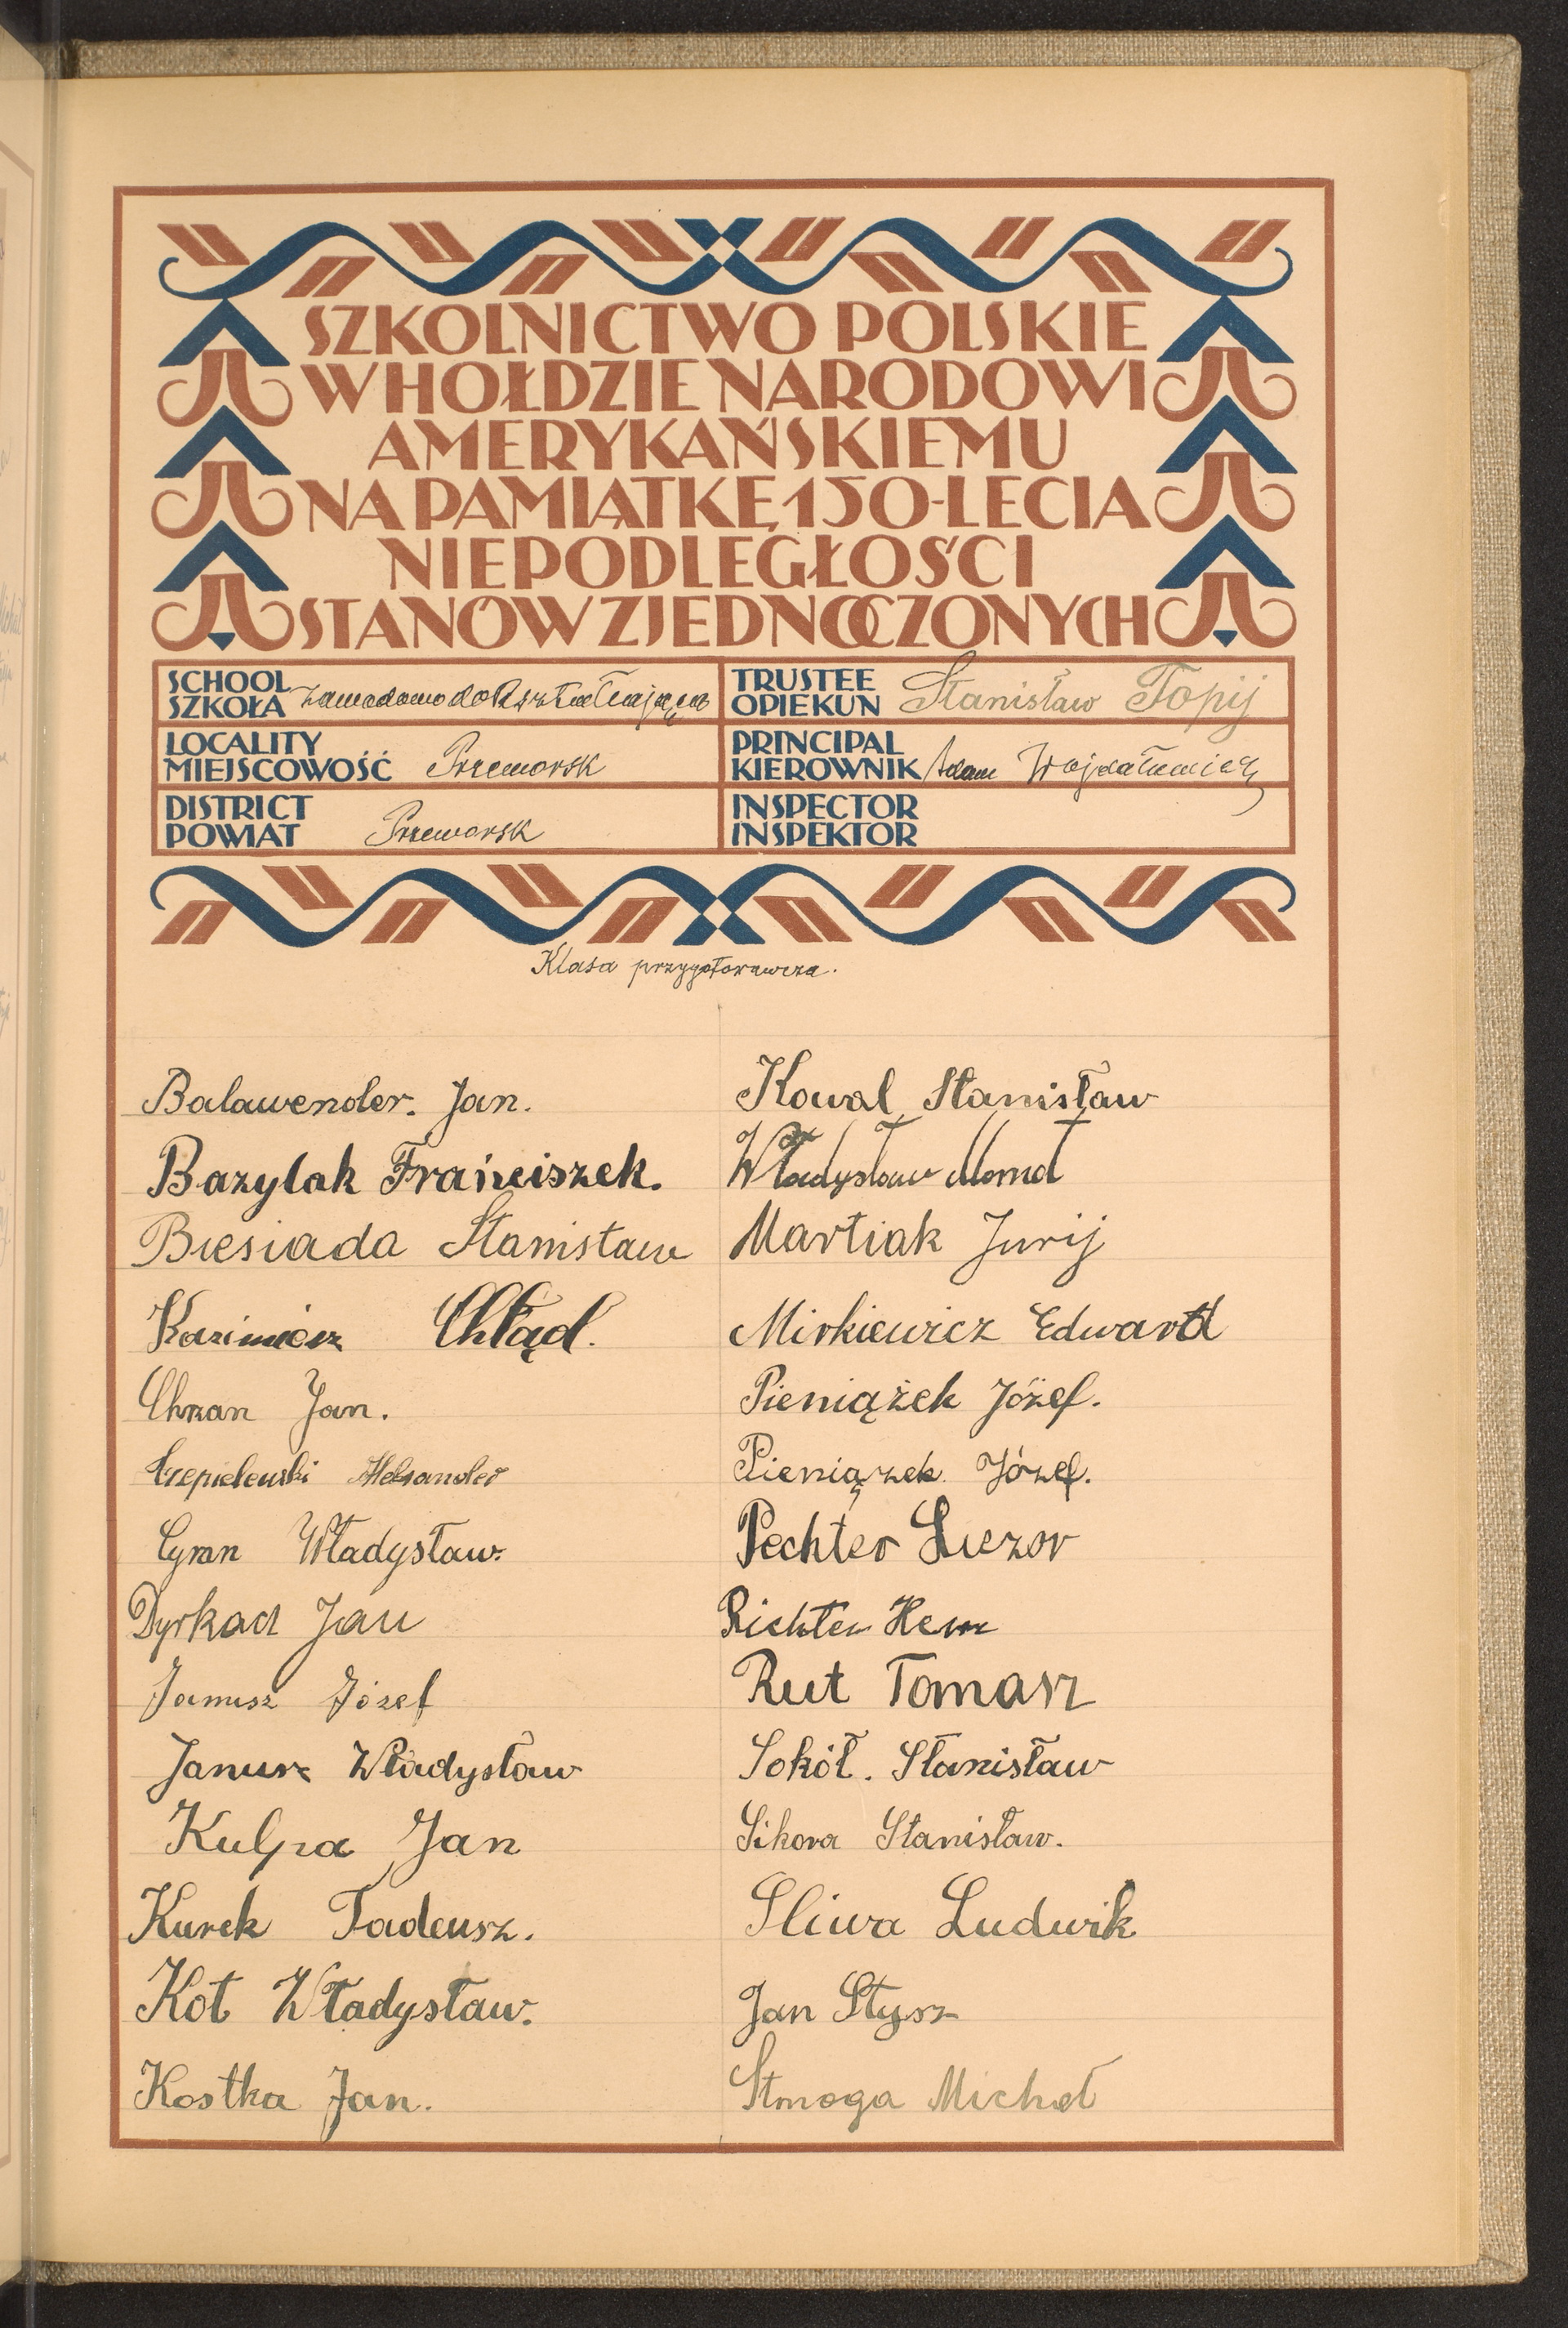 SZKOLNICTWO POLSKIE
W HOŁDZIE NARODOWI
AMERYKAŃSKIEMU
NA PAMIĄTKĘ 150-LECIA
NIEPODLEGŁOŚCI
STANÓW ZJEDNOCZONYCH
SCHOOL
SZKOŁA zawodowo dokształcająca
LOCALITY
MIEJSCOWOŚĆ Przeworsk
DISTRICT
POWIAT Przeworsk
TRUSTEE
OPIEKUN Stanisław Topij
PRINCIPAL
KIEROWNIK Adam
INSPECTOR
INSPEKTOR
Klasa przygotowawcza.
Balawender. Jan.
Bazylak Franciszek.
Biesiada Stanisław
Kazimierz Chłąd.
Chrzan Jan.
Czepielewski Aleksander
Cyran Władysław.
Dyrkacz Jan
Janusz Józef
Janusz Władysław
Kulpa Jan
Kurek Tadeusz.
Kot Władysław.
Kostka Jan.
Kowal Stanisław
Władysław
Martiak Jurij
Mirkiewicz Edward
Pieniążek Józef.
Pieniązek Józef.
Pechter
Richter
Rut Tomasz
Sokół. Stanisław
Sikora Stanisław.
Sliwa Ludwik
Jan Stysz
Michał